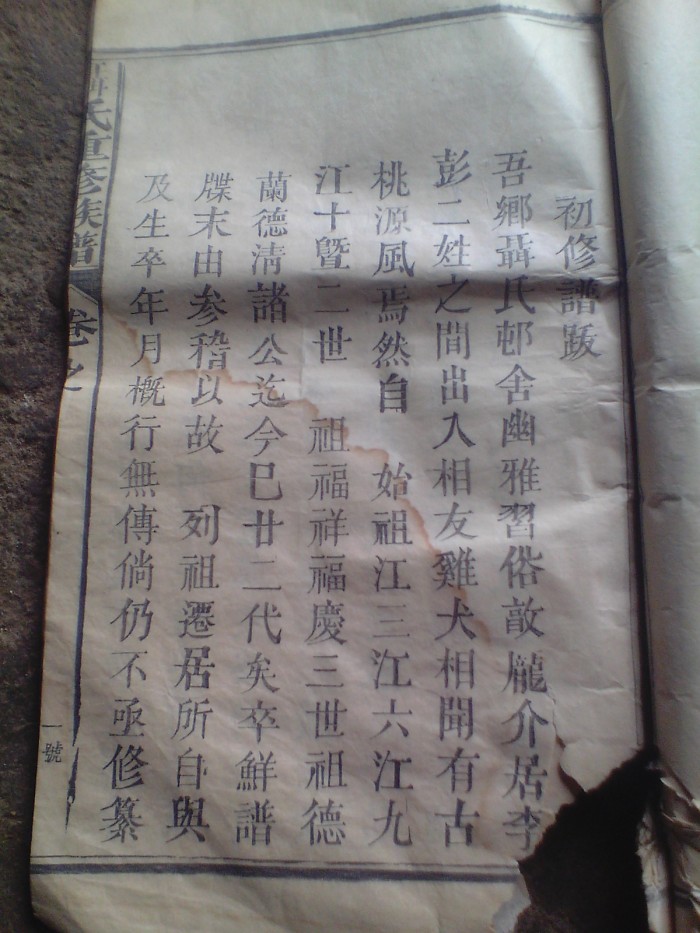 初修譜跋
吾鄉聶氏邨舍幽雅習俗敦龐介居李
彭二姓之間出入相友雞犬相聞有古
桃源風焉然自 始祖江三江六江九
江十暨二世 祖福祥福慶三世祖德
蘭德清諸公迄今巳廿二代矣卒鮮譜
牒末由参稽以故 列祖遷居所自與
及生卒年月槪行無傳倘仍不亟修纂
氏重修族譜 卷之
一號